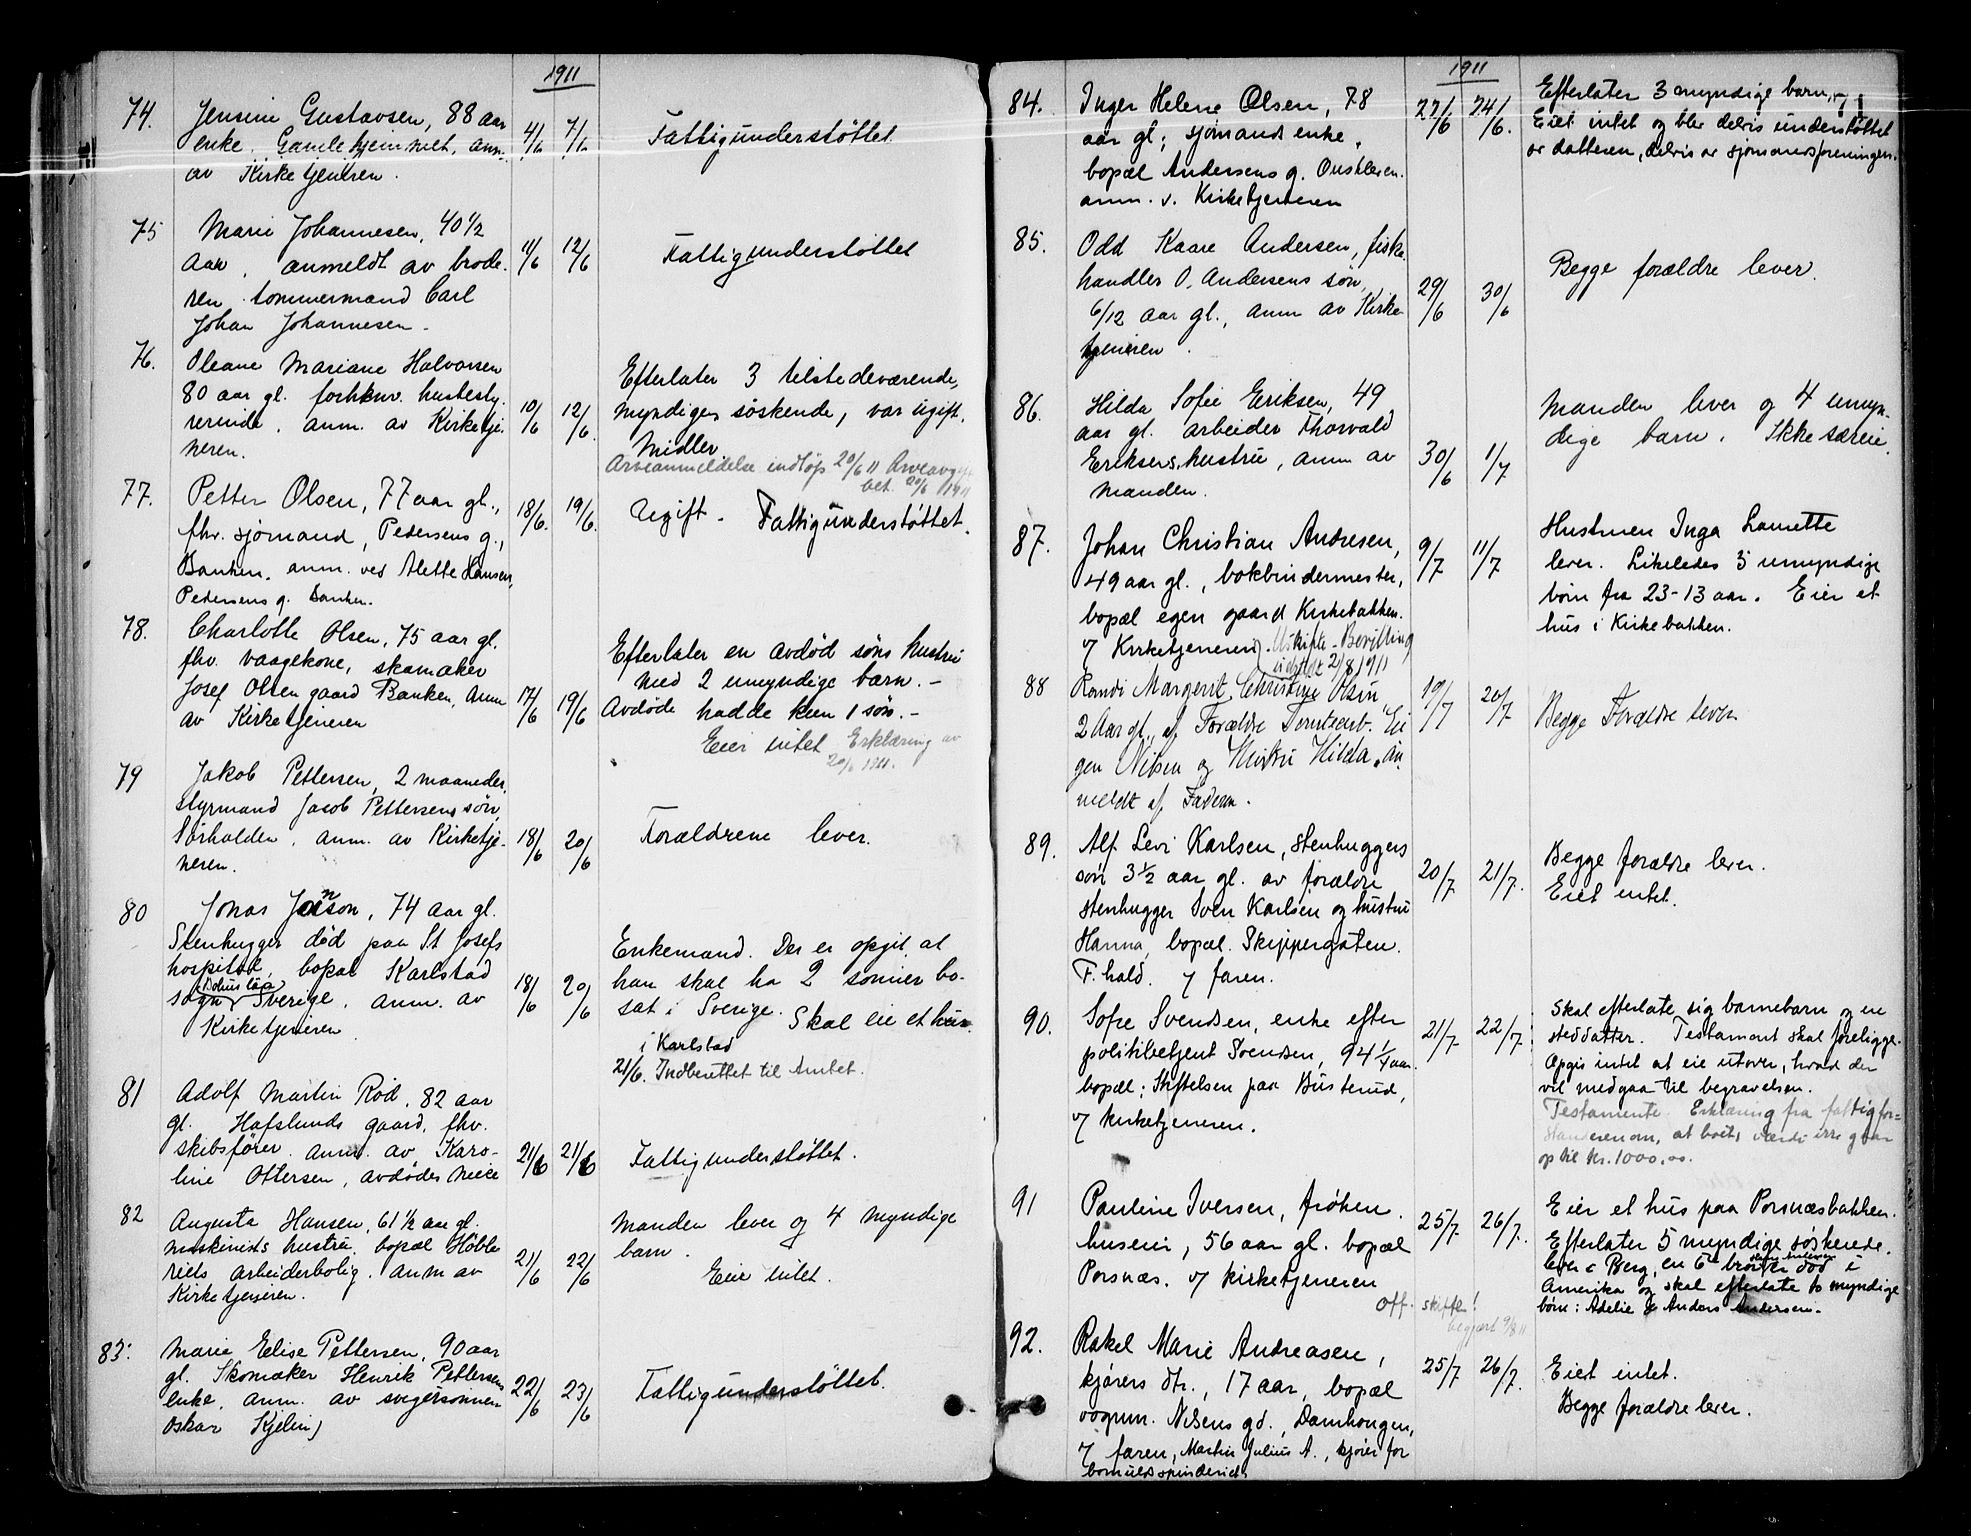 1911
74. Jensine Gustavsen, 88 aar
enke. Gamlehjemmet, anm.
av Kirketjeneren.
4/6 7/6
Fattigunderstøttet
75 Marie Johannesen, 40 1/2
Aar, anmeldt av brode-
ren tømmermand Carl
Johan Johannesen.
11/6 12/6
Fattigunderstøttet
76. Oleane Mariane Halvorsen
80 aar gl. forhenv. husbesty-
rerinde, anm. av Kirketje-
neren.
10/6 12/6.
Efterlater 3 tilstedeværende,
myndige søskende, var ugift.
Midler.
Arveanmeldelse indløp 20/6 11 Arveavgift
bet. 20/6 1911
77. Petter Olsen, 77 aar gl.,
fhv. sjømand, Pedersens g.,
Banken. anm. ved Alette Hansen,
Pedersens g. Banken.
18/6. 19/6.
Ugift. Fattigunderstøttet.
78. Charlotte Olsen, 75 aar gl.
fhv. vaagekone, skomaker
Josef Olsen gaard Banken, Anm
av Kirketjeneren
17/6 19/6
Efterlater en avdød søns hustru
med 2 umyndige barn. -
Avdøde hadde kun 1 søn. -
Eier intet Erklæring av
20/6 1911.
79 Jakob Pettersen, 2 maaneder,
styrmand Jacob Pettersens søn,
Sørhalden, anm. av Kirketje-
neren.
18/6 20/6
Forældrene lever.
80 Jonas Jonson, 74 aar gl.
Stenhugger død paa St Josefs
hospital, bopæl Karlstad
sogn (Bohus län) Sverige, anm. av
Kirketjeneren
18/6 20/6
Enkemand. Der er opgit at
han skal ha 2 sønner bo-
sat i Sverige. Skal eie et hus
i Karlstad
21/6. Indberettet til Amtet.
81 Adolf Martin Rød, 82 aar
gl. Hafslunds gaard, fhv.
skibsfører. anm. av Karo-
line Ottersen, avdødes niece
21/6 21/6
Fattigunderstøttet.
82 Augusta Hansen, 61 1/2 aar gl.
maskinists hustru, bopæl
arbeiderbolig. anm av
Kirketjeneren.
21/6 22/6
Manden lever og 4 myndige
barn.
Eier intet.
83. Marie Elise Pettersen, 90 aar
gl. Skomaker Henrik Pettersens
enke, anm. av svigersønnen
Oskar Kjelin)
22/6 23/6
Fattigunderstøttet.
1911
84. Inger Helene Olsen, 78
aar gl; sjømands enke,
bopæl Andersens g.
anm. v. Kirketjeneren
27/6 /6.
Efterlater 3 myndige barn,
Eiet intet og blev delvis understøttet
av datteren, delvis av sjømandsforeningen.
85. Odd Kaare Andersen, fiske-
handler O. Andersens søn,
6/12 aar gl., anm av Kirke-
tjeneren.
29/6 30/6
Begge forældre lever.
86. Hilda Sofie Eriksen, 49
aar gl. arbeider Thorvald
Eriksens hustru, anm av
manden.
30/6 1/7
Manden lever og 4 umyn-
dige barn. Ikke særeie.
87. Johan Christian Andresen,
49 aar gl., bokbindermester,
bopæl egen gaard Kirkebakken.
v/ Kirketjeneren). Uskifte-Bevilling
utstedt 2/8 1911
9/7 11/7
Hustruen Inga Laurette
lever. Likeledes 3 umyndige
børn fra 23-13 aar. Eier et
hus i Kirkebakken.
88 Randi Margerit Christine Olsen
2 Aar gl., af Forældre Ei-
gen Nilsen og Hustru Hilda. An-
meldt af Faderen.
19/7 20/7
Begge Forældre lever
89. Alf Levi Karlsen, stenhuggers
søn 3 1/2 aar gl. av forældre
stenhugger Sven Karlsen og hustru
Hanna, bopæl. Skippergaten.
F. hald. v/ faren.
20/7 21/7.
Begge forældre lever.
Eiet intet.
90. Sofie Svendsen, enke efter
politibetjent Svendsen, 94 1/4 aar.
bopæl: Stiftelsen paa Busterud,
v/ kirketjeneren.
21/7 22/7
Skal efterlate sig barnebarn og en
steddatter. Testament skal foreligge.
Opgis intet at eie utover, hvad der
vil medgaa til begravelsen.
Testamente. Erklæring fra fattigfor-
standeren om, at boets værdi ikke gaar
op til kr. 1000,00.
91 Pauline Iversen, frøken.
huseier, 56 aar gl. bopæl
Porsnæs. v/ kirketjeneren
Off. skifte!
begjært 9/8 11
25/7 26/7.
Eier et hus paa Porsnæsbakken.
Efterlater 5 myndige søskende.
lever i Berg, en 6te bror er død i
Amerika og skal efterlate to myndige
børn: Adelie & Anders Andersen.
92. Rakel Marie Andreasen,
kjørers dtr., 17 aar, bopæl
vognm. Nilsens gd., Damhaugen,
v/ faren, Martin Julius A., kjører for
bomuldsspinderiet.
25/7 26/7.
Eiet intet.
Begge forældre lever.